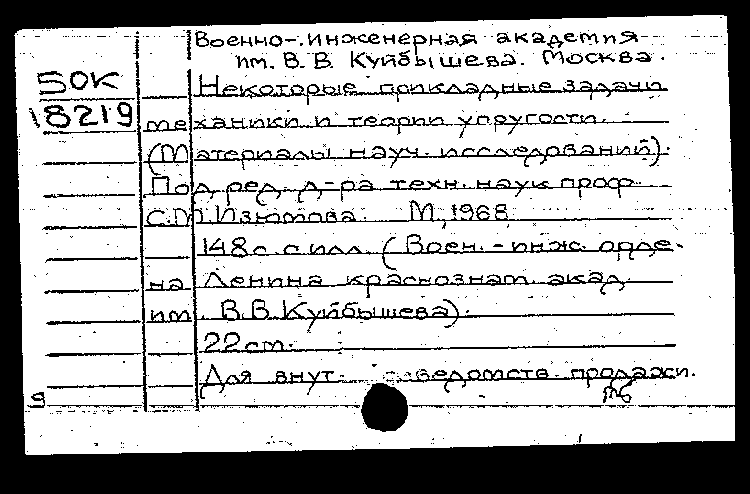 Военно-инженерная академия
им. В. В. Куйбышева. Москва.
50К
18219
Некоторые прикладные задачи
механики и теории упругости.
(Материалы науч. исследований).
Под ред. д-ра техн. наук проф.
С.М. Изюмова. М., 1968.
148 с. с илл. (Воен.-инж. орде-
на Ленина краснознам. акад.
им. В.В. Куйбышева).
22 см.
Для внут. ведомств. продажи.